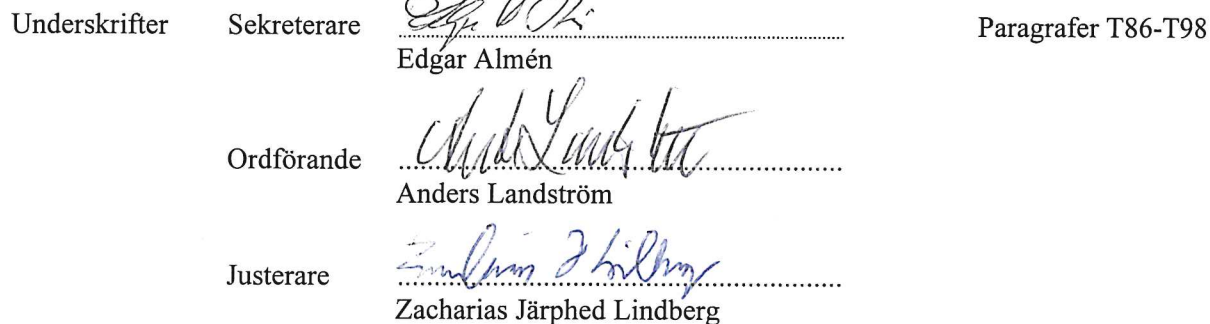 Underskrifter Sekreterare Paragrafer T86-T98
Edgar Almén
Ordförande
Anders Landström
Justerare
Zacharias Järphed Lindberg